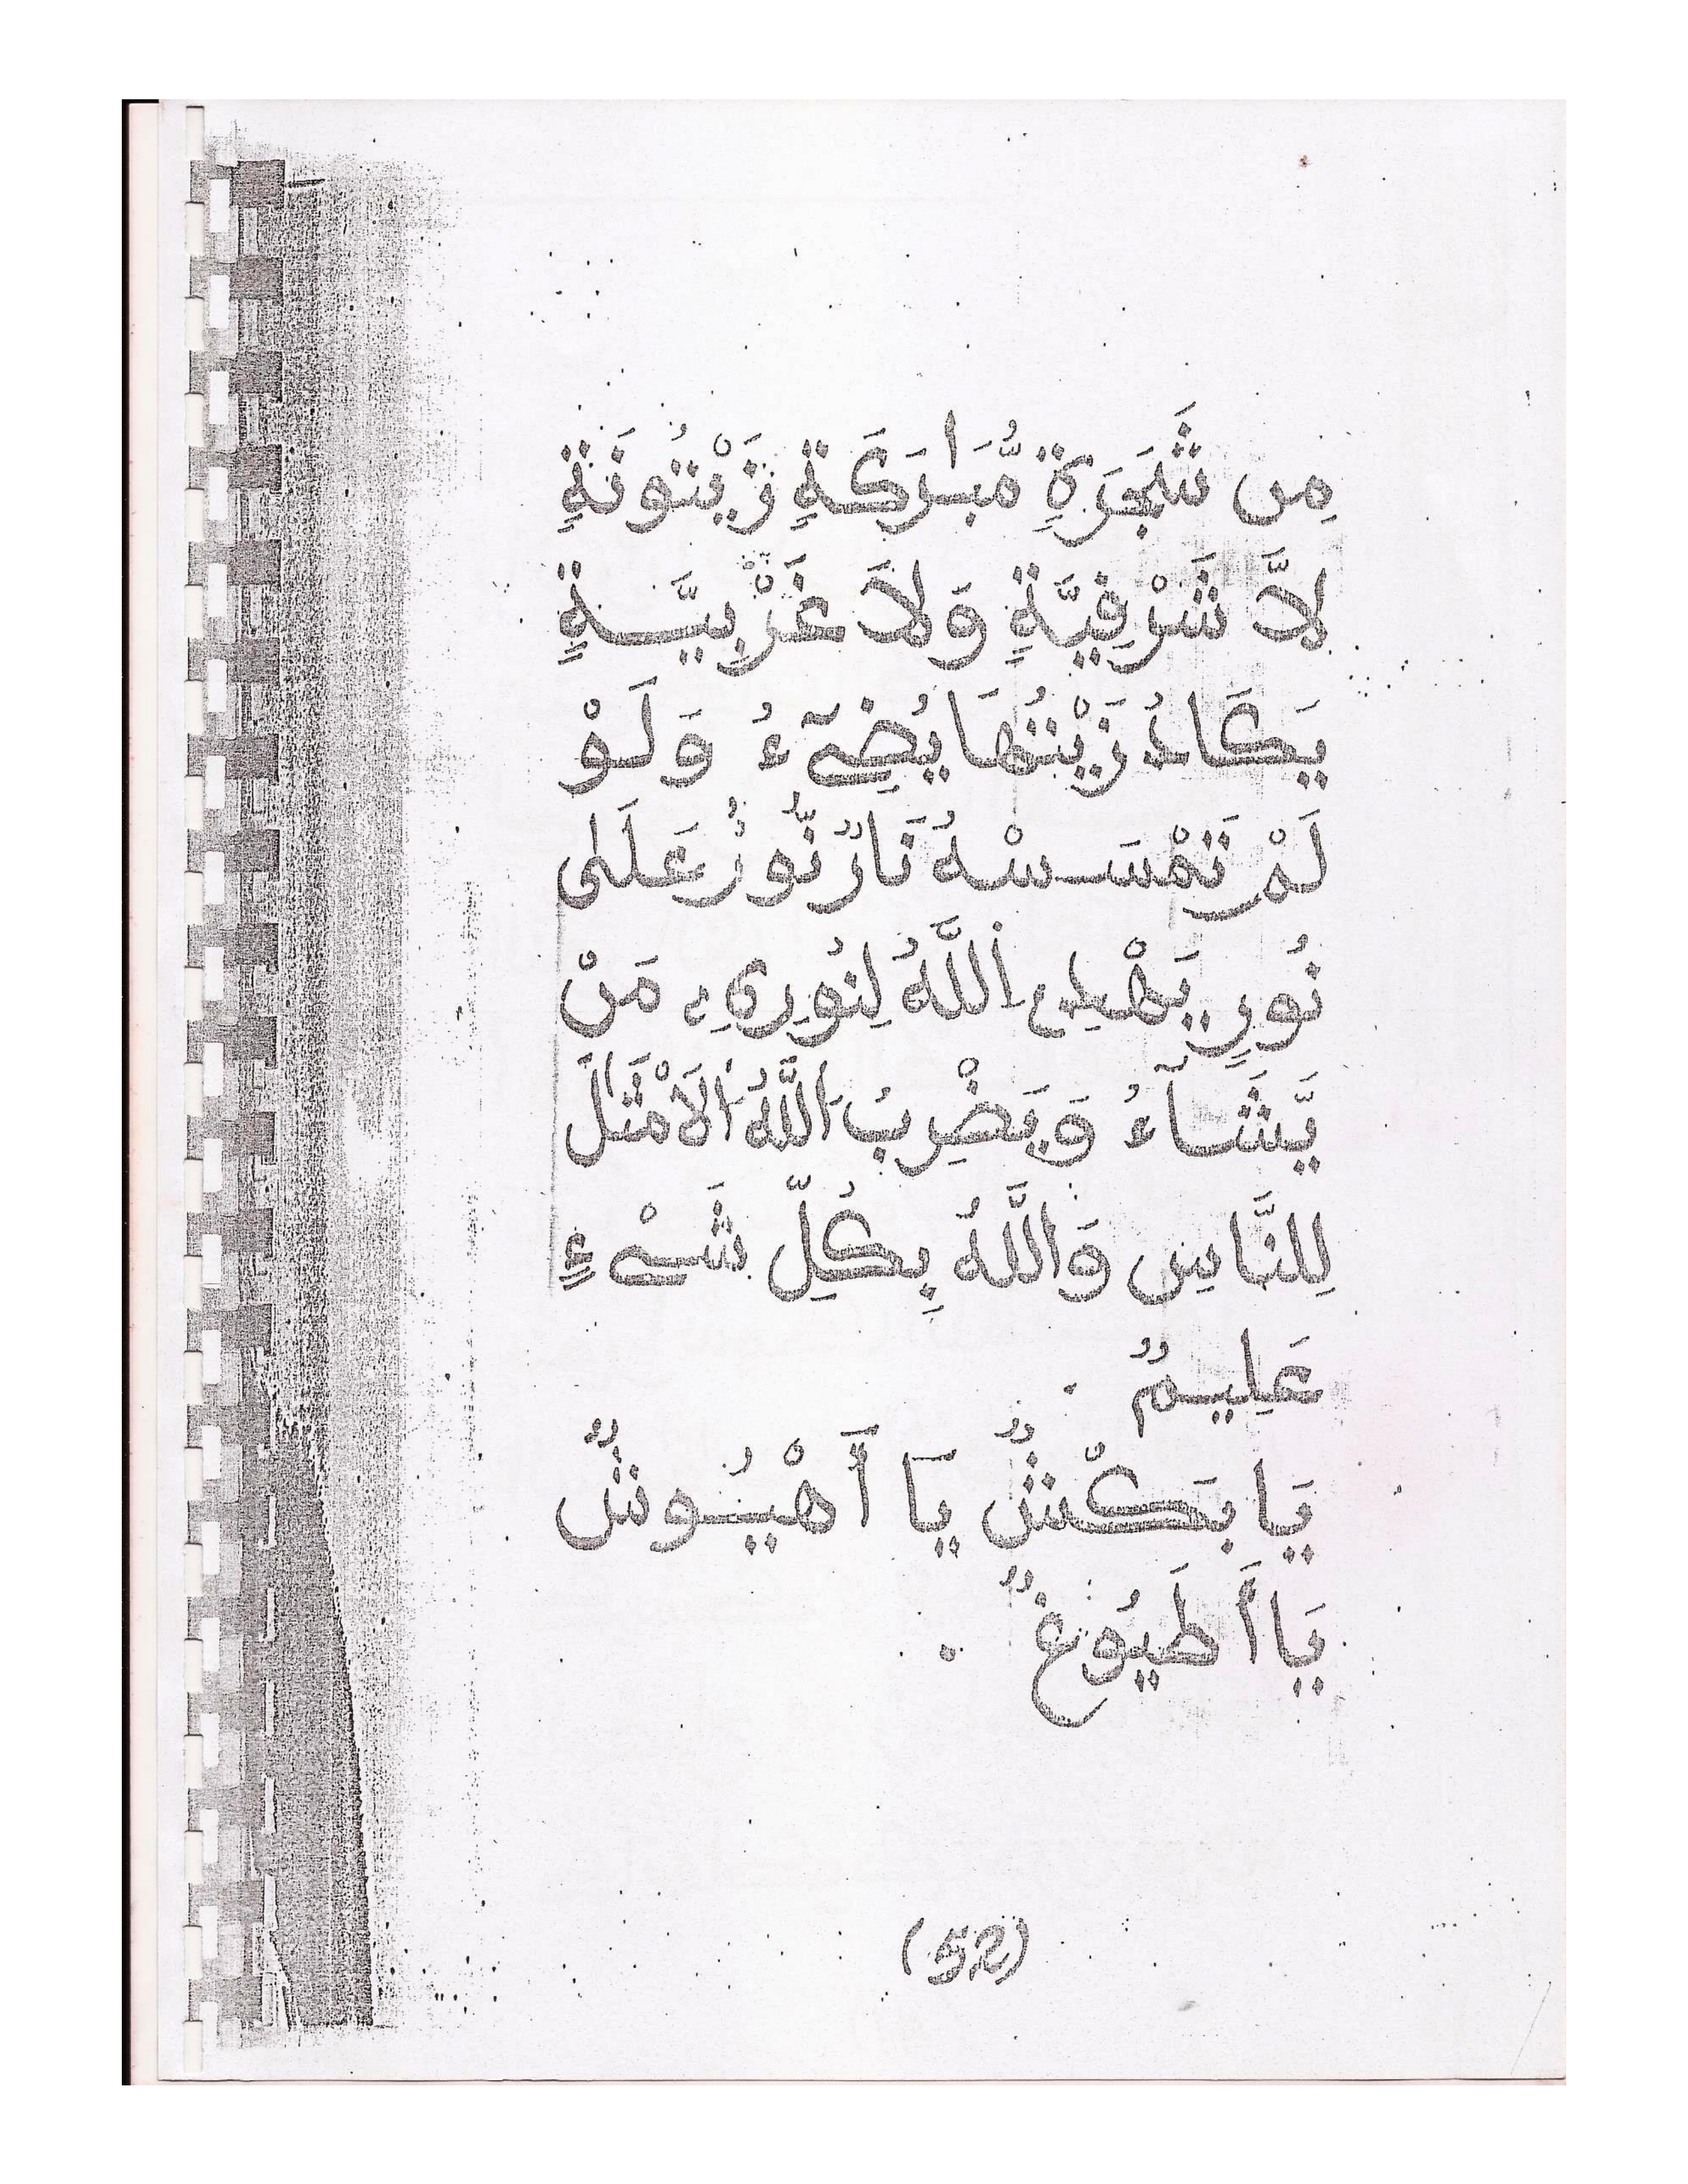 مِن شَجَرَةٍ مُّبَٰرَكَةٍ زَيْتُونَةٍ
لاَّ شَرْفِيَّةٍ وَلاَ غَرْبِيَّةٍ
يَكَادُ زَيْتُهَا يُضِےٓءُ وَلَوْ
لَمْ تَمْسَسْهُ نَارٌ نُّورٌ عَلَىٰ
نُورٍ يَهْدِے اِ۬للَّهُ لِنُورِهِۦ مَنْ
يَّشَآءُ وَيَضْرِبُ اَ۬للَّهُ اُ۬لَامْثَٰلَ
لِلنَّاسِ وَاللَّهُ بِكُلِّ شَےْءٍ
عَلِيمٌ .
يَا بَكّْشٌ يَا أَهْيُوشٌ
يَا أَطَيُوغٌ .
(52)